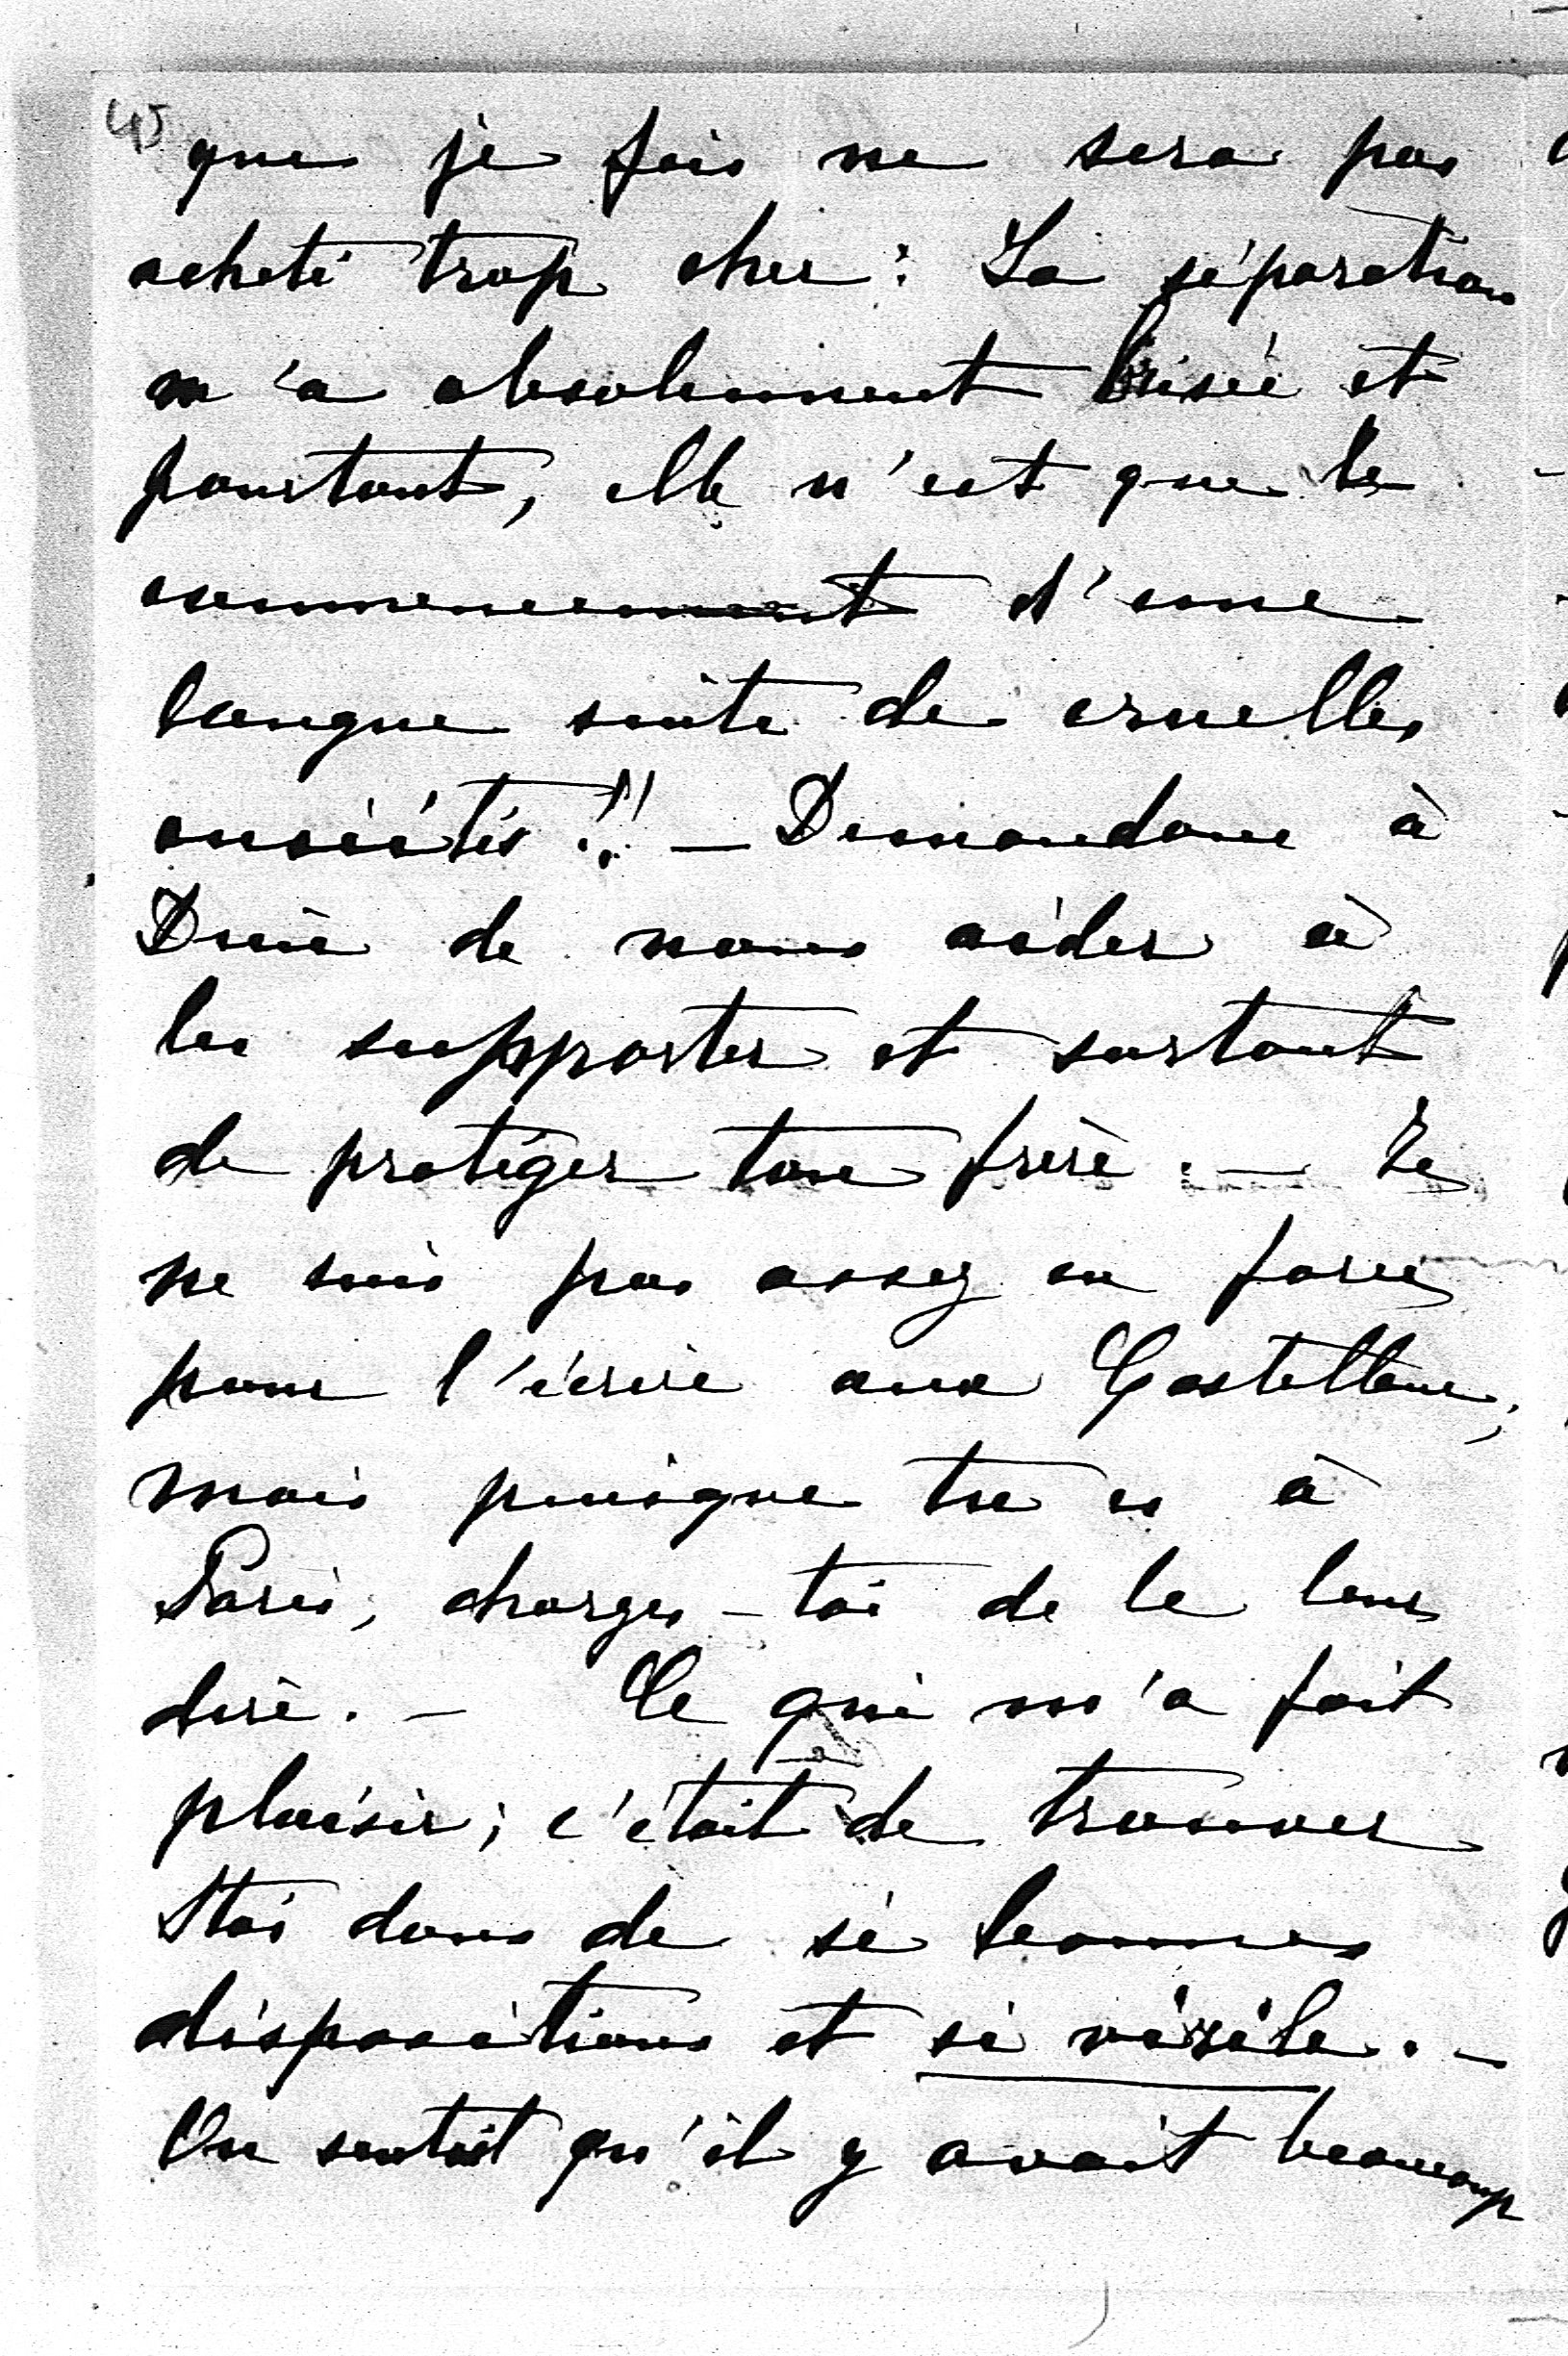 45
que je fais ne sera pas
acheté trop cher : La séparation
m'a absolument brisée et
pourtant, elle n'est que le
commencement d'une
longue suite de cruelles
anxiétés !! — Demandons à
Dieu de nous aider à
les supporter et surtout
de protéger ton frère. — Je
ne suis pas assez en force
pour l'écrire aux Castellane,
mais puisque tu es à
Paris, charges-toi de le leur
dire. — Ce qui m'a fait
plaisir, c'était de trouver
Stas dans de si bonnes
dispositions et si virile. —
On sentait qu'il y avait beaucoup